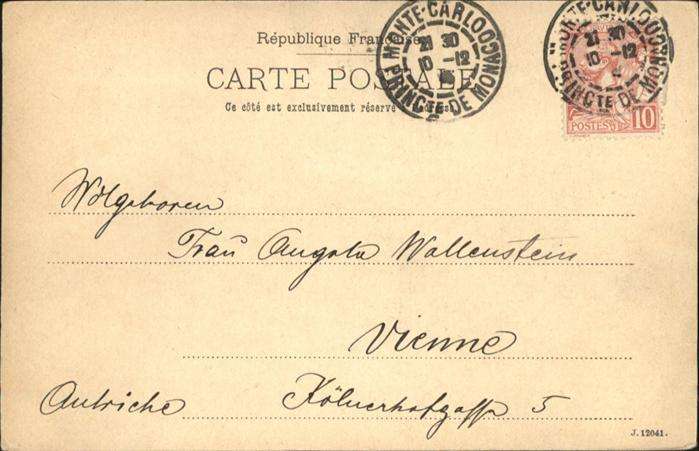 République Française
CARTE POSTALE
Ce côté est exclusivement réservé à l'adresse
MONTE-CARLO
21 30
10 -12
PRINCTE DE MONACO
MONTE-CARLO
21 30
10 -12
PRINCTE DE MONACO
POSTES 10
Wolgeboren
Frau Angela Wallenstein
Vienne
Autriche Kölnerhofgasse 5
J. 12041.